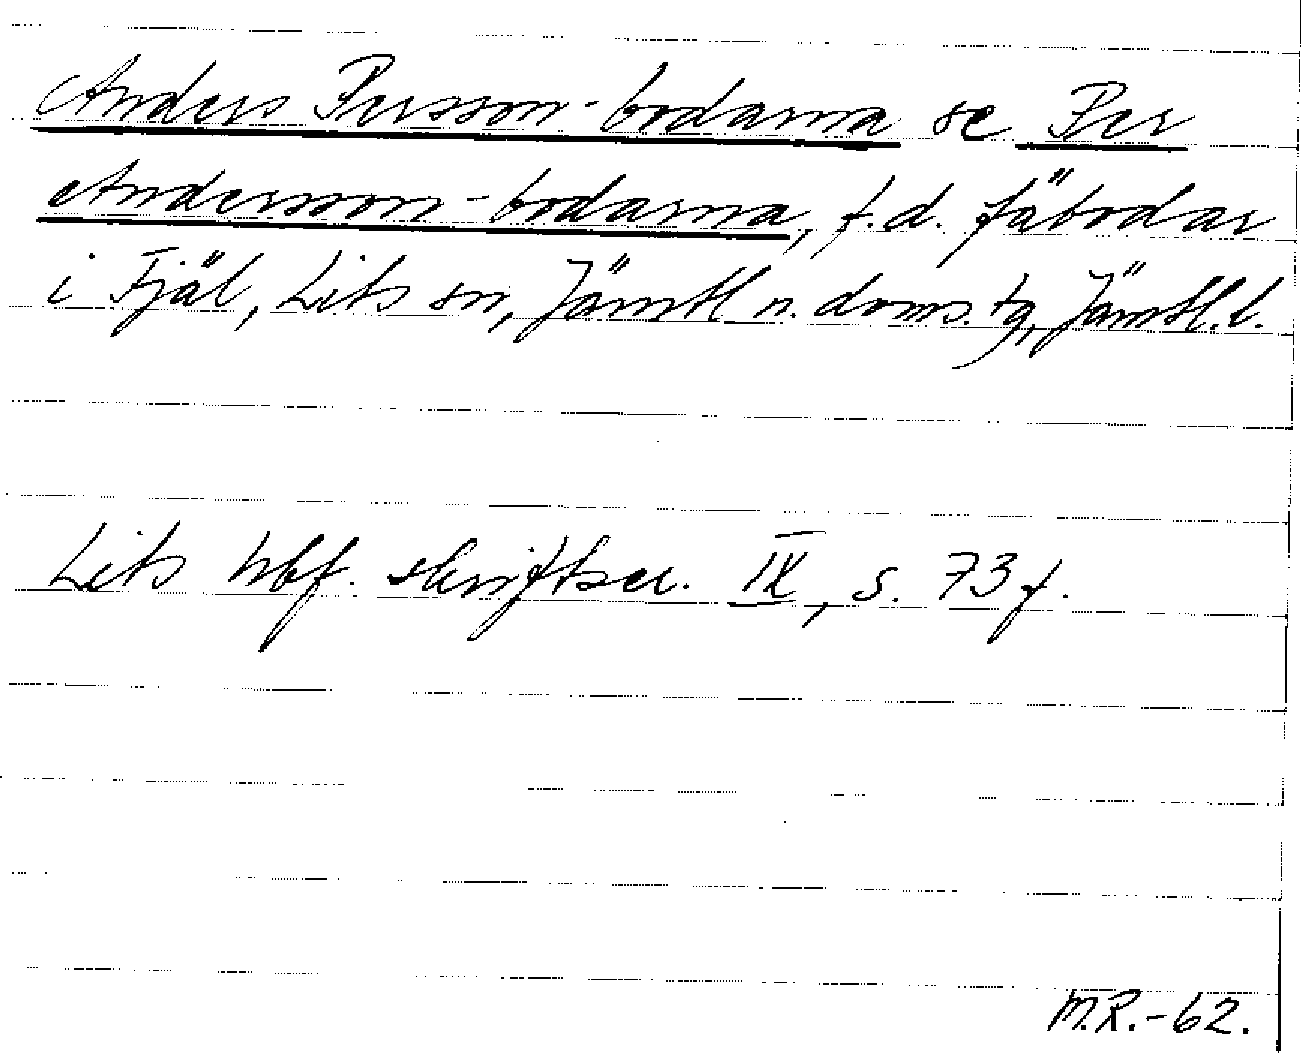 Anders Persson-bodarna se Per
Andersson-bodarna, f.d. fäbodar
i Fjäl, Lits sn, Jämtl n. doms. tg, Jämtl. l.
Lits hbf. skriftser. IX, s. 73 f.
M.R.-62.